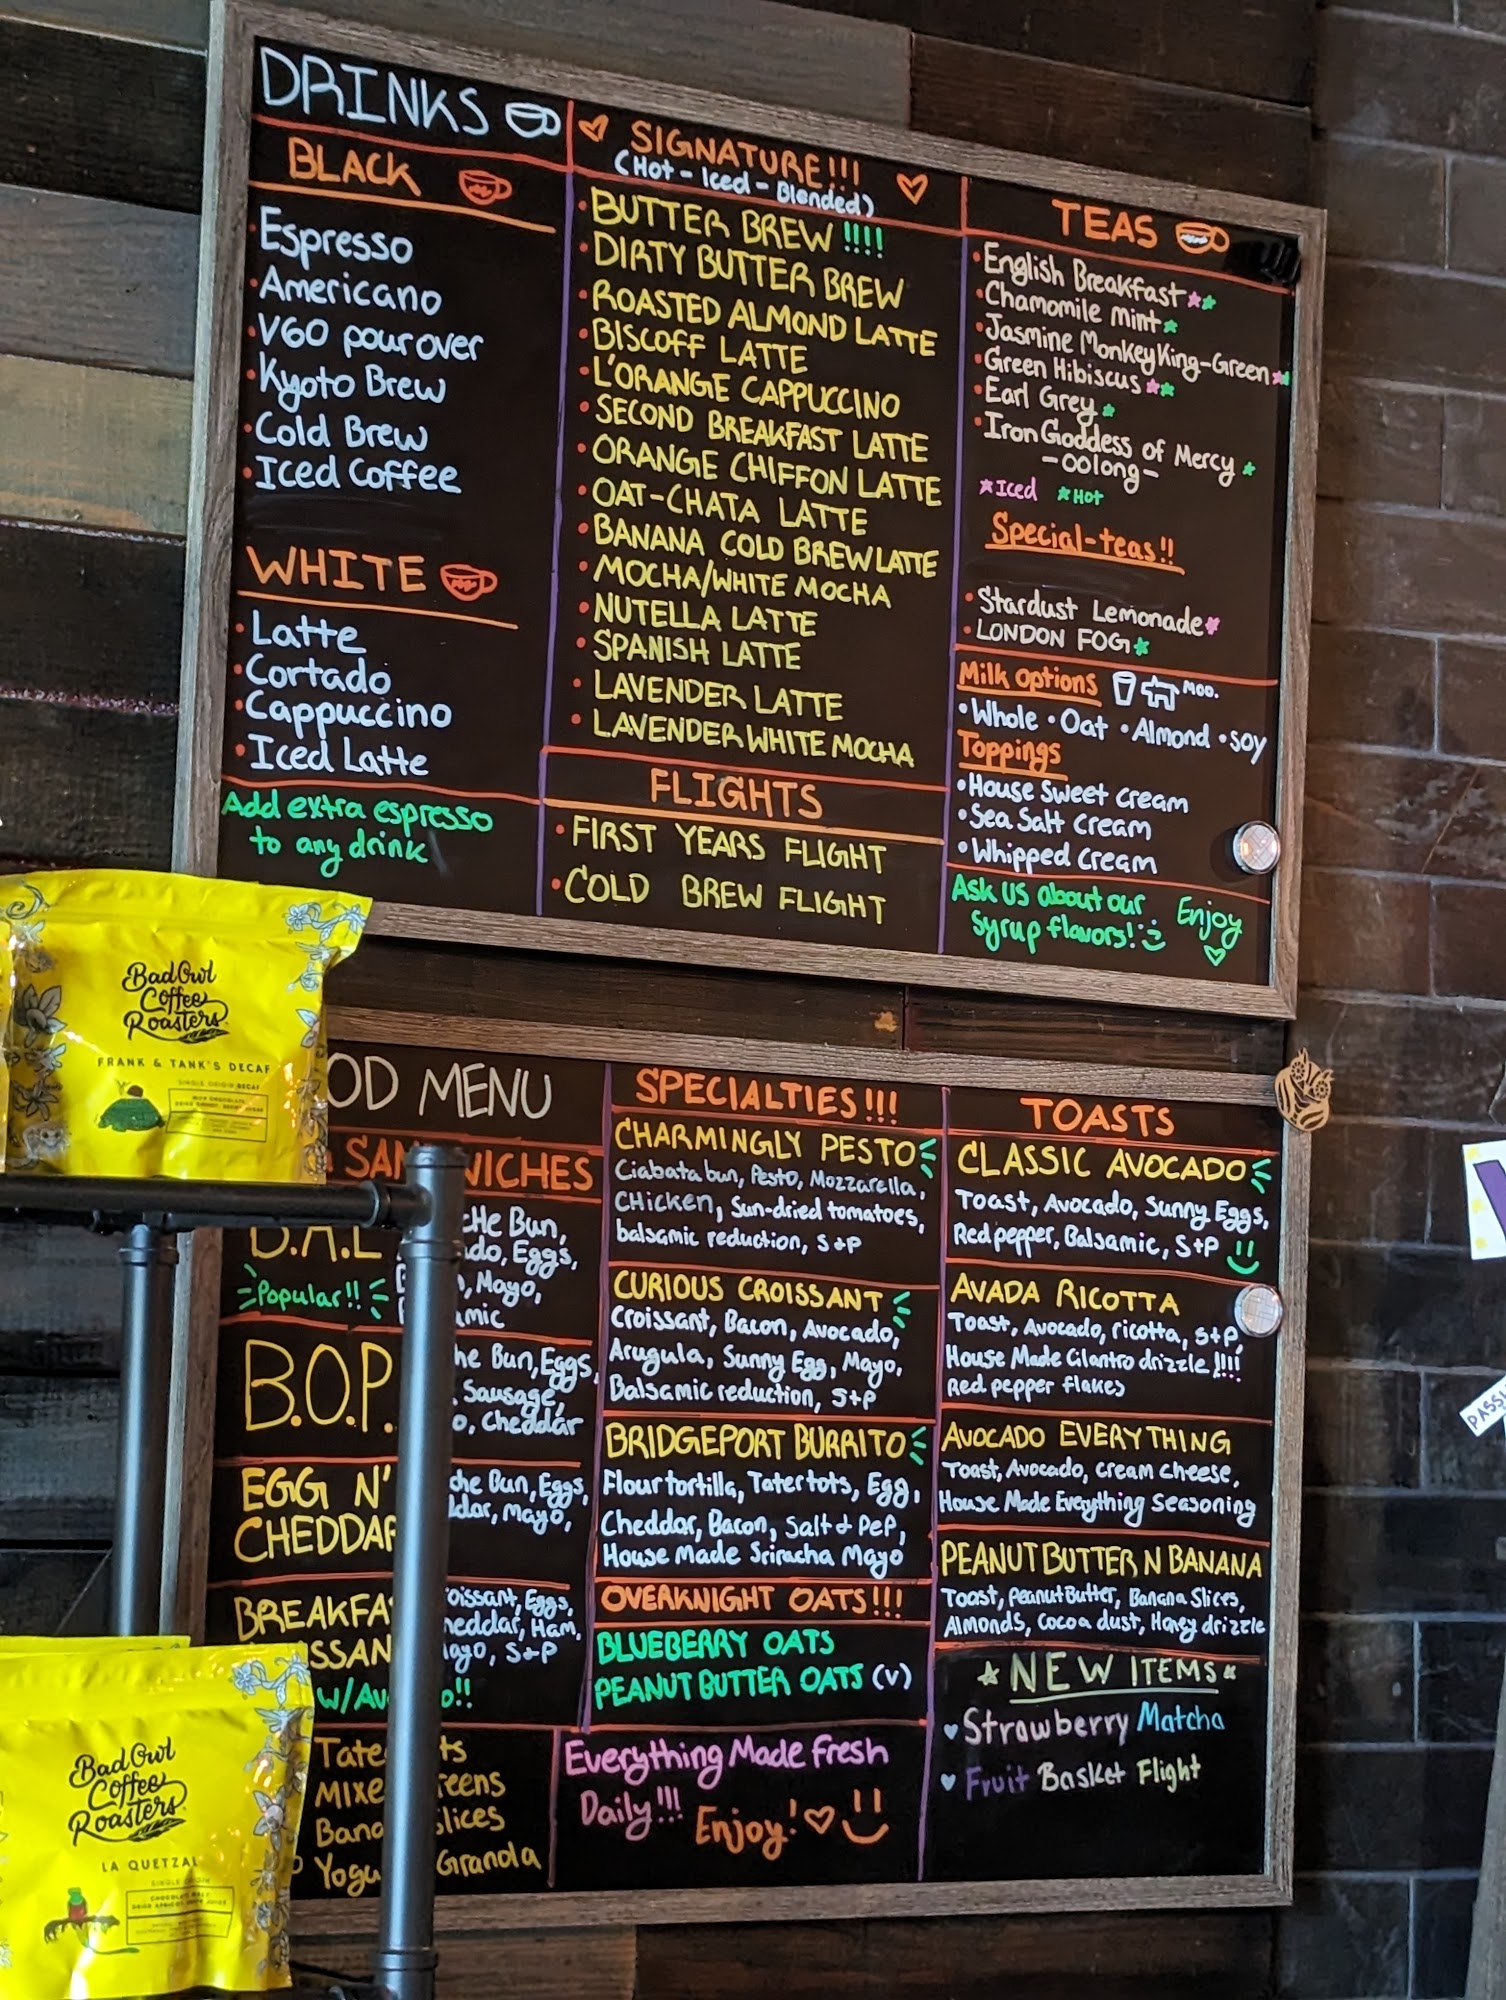 DRINKS
BLACK
Espresso
Americano
V60 pour over
Kyoto Brew
Cold Brew
Iced Coffee
WHITE
Latte
Cortado
Cappuccino
Iced Latte
Add extra espresso
to any drink
SIGNATURE!!!
(Hot - Iced - Blended)
BUTTER BREW !!!!
DIRTY BUTTER BREW
ROASTED ALMOND LATTE
BISCOFF LATTE
L'ORANGE CAPPUCCINO
SECOND BREAKFAST LATTE
ORANGE CHIFFON LATTE
OAT-CHATA LATTE
BANANA COLD BREW LATTE
MOCHA/WHITE MOCHA
NUTELLA LATTE
SPANISH LATTE
LAVENDER LATTE
LAVENDER WHITE MOCHA
FLIGHTS
FIRST YEARS FLIGHT
COLD BREW FLIGHT
TEAS
English Breakfast
Chamomile Mint
Jasmine Monkey King-Green
Green Hibiscus
Earl Grey
Iron Goddess of Mercy
-oolong-
Iced Hot
Special-teas!!
Stardust Lemonade
LONDON FOG
Milk Options MOO.
Whole • Oat • Almond • soy
Toppings
House Sweet cream
Sea Salt cream
Whipped cream
Ask us about our
syrup flavors!
Enjoy
OD MENU
SAN WICHES
B.A.L
Popular!!
che Bun,
do, Eggs,
Mayo,
amic
B.O.P.
he Bun, Eggs,
Sausage,
o, cheddar
EGG N'
CHEDDAR
che Bun, Eggs,
ddar, Mayo,
BREAKFA
SSAN
W/Av o!!
oissant, Eggs,
heddar, Ham,
ayo, S+P
Tate ts
Mixe reens
Bana slices
Yogu Granola
SPECIALTIES!!!
CHARMINGLY PESTO
Ciabata bun, Pesto, Mozzarella,
CHicken, Sun-dried tomatoes,
balsamic reduction, S+P
CURIOUS CROISSANT
Croissant, Bacon, Avocado,
Arugula, Sunny Egg, Mayo,
Balsamic reduction, S+P
BRIDGEPORT BURRITO
Flour tortilla, Tater tots, Egg,
Cheddar, Bacon, Salt + PeP,
House Made Sriracha Mayo
OVERKNIGHT OATS!!!
BLUEBERRY OATS
PEANUT BUTTER OATS (V)
Everything Made Fresh
Daily!!! Enjoy!
TOASTS
CLASSIC AVOCADO
Toast, Avocado, Sunny Eggs,
Red pepper, Balsamic, S+P
AVADA RICOTTA
Toast, Avocado, ricotta, S+P,
House Made Cilantro drizzle !!!!
Red pepper flakes
AVOCADO EVERYTHING
Toast, Avocado, cream cheese,
House Made Everything seasoning
PEANUT BUTTER N BANANA
Toast, Peanut Butter, Banana Slices,
Almonds, cocoa dust, Honey drizzle
NEW ITEMS
Strawberry Matcha
Fruit Basket Flight
Bad Owl
Coffee
Roasters
FRANK & TANK'S DECAF
SINGLE ORIGIN DECAF
Bad Owl
Coffee
Roasters
LA QUETZAL
SINGLE ORIGIN
PASSI